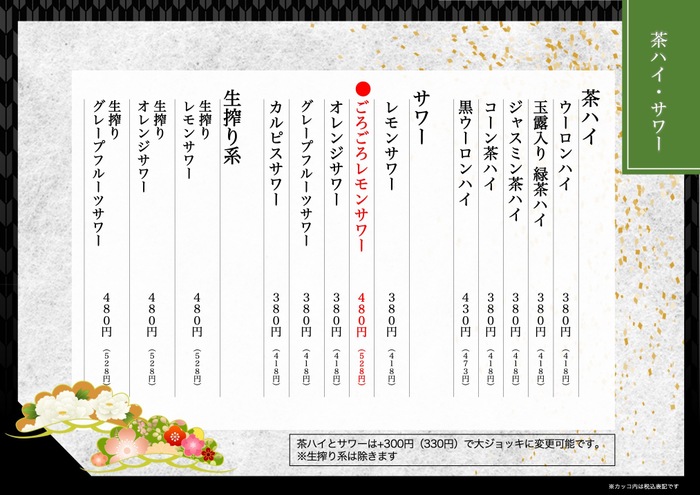 茶ハイ・サワー
茶ハイ
ウーロンハイ 380円 (418円)
玉露入り 緑茶ハイ 380円 (418円)
ジャスミン茶ハイ 380円 (418円)
コーン茶ハイ 380円 (418円)
黒ウーロンハイ 430円 (473円)
サワー
レモンサワー 380円 (418円)
●ごろごろレモンサワー 480円 (528円)
オレンジサワー 380円 (418円)
グレープフルーツサワー 380円 (418円)
カルピスサワー 380円 (418円)
生搾り系
生搾り
レモンサワー 480円 (528円)
生搾り
オレンジサワー 480円 (528円)
生搾り
グレープフルーツサワー 480円 (528円)
茶ハイとサワーは+300円（330円）で大ジョッキに変更可能です。
※生搾り系は除きます
※カッコ内は税込表記です